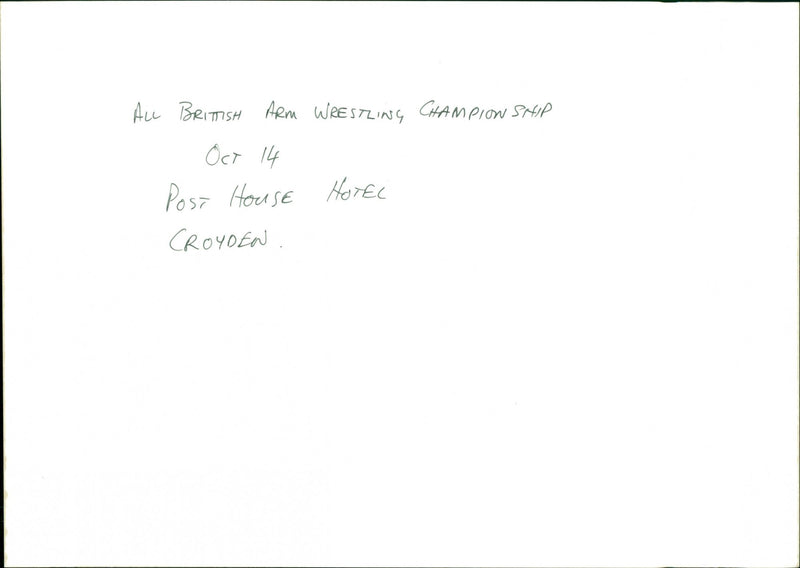 ALL BRITTISH ARM WRESTLING CHAMPIONSHIP
OCT 14
POST HOUSE HOTEL
CROYDEN.